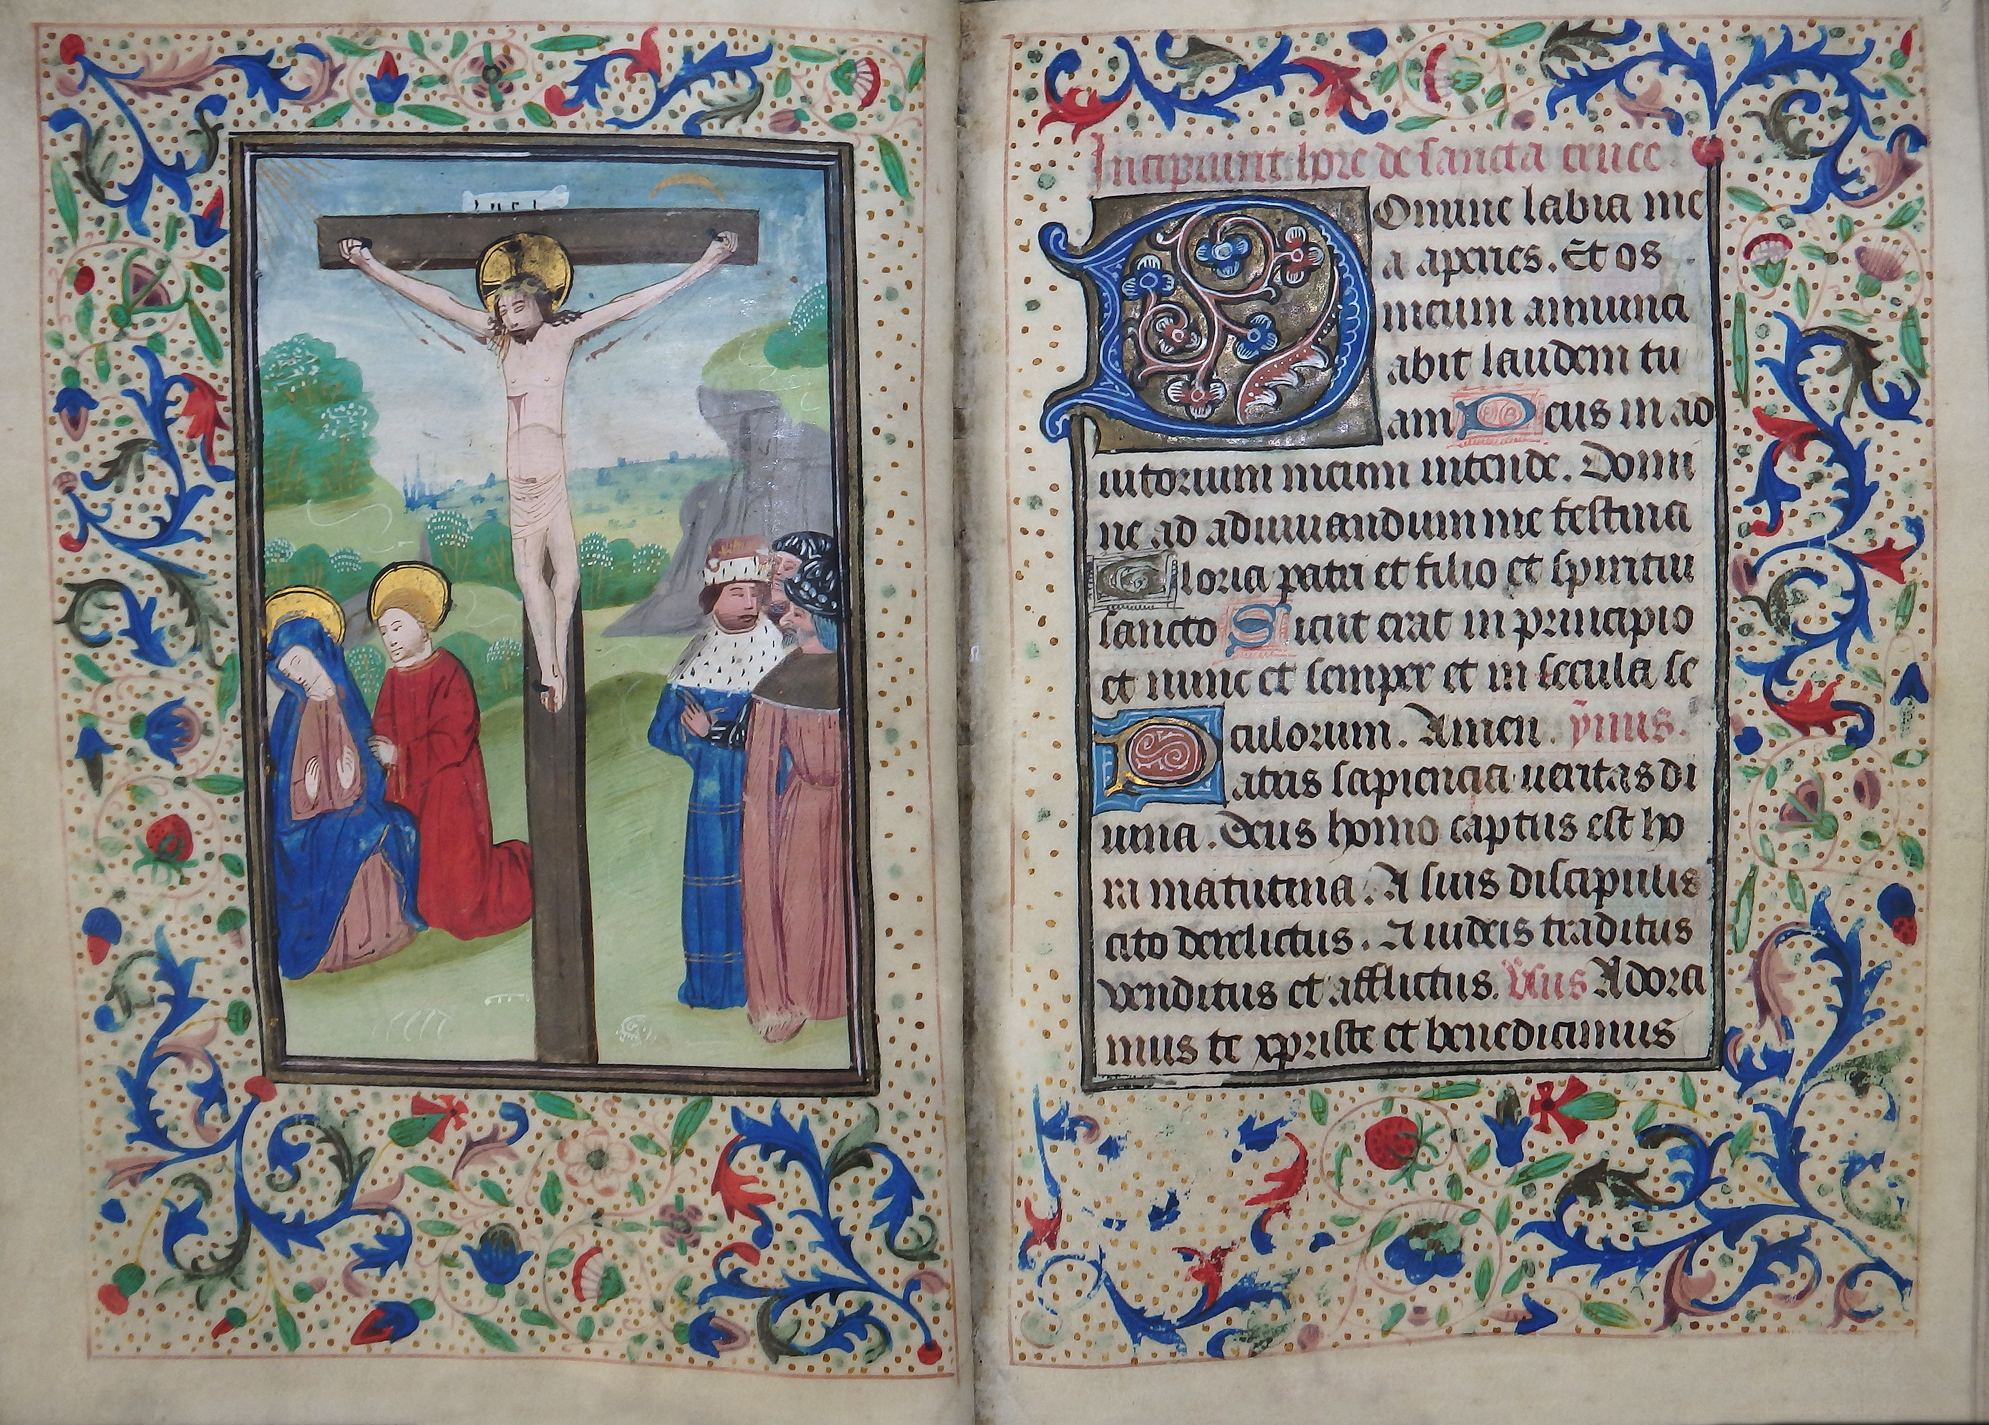 INRI
Incipiunt hore de sancta cruce.
Domine labia me
a aperies. Et os
meum annunci
abit laudem tu
am Deus in ad
iutorium meum intende. Domi
ne ad adiuuandum me festina
Gloria patri et filio et spiritui
sancto Sicut erat in principio
et nunc et semper et in secula se
culorum. Amen. ymus.
Patris sapiencia ueritas di
uina. Deus homo captus est ho
ra matutina. A suis discipulis
cito derelictus. A iudeis traditus
venditus et afflictus. v̄sus Adora
mus te xpriste et benedicimus